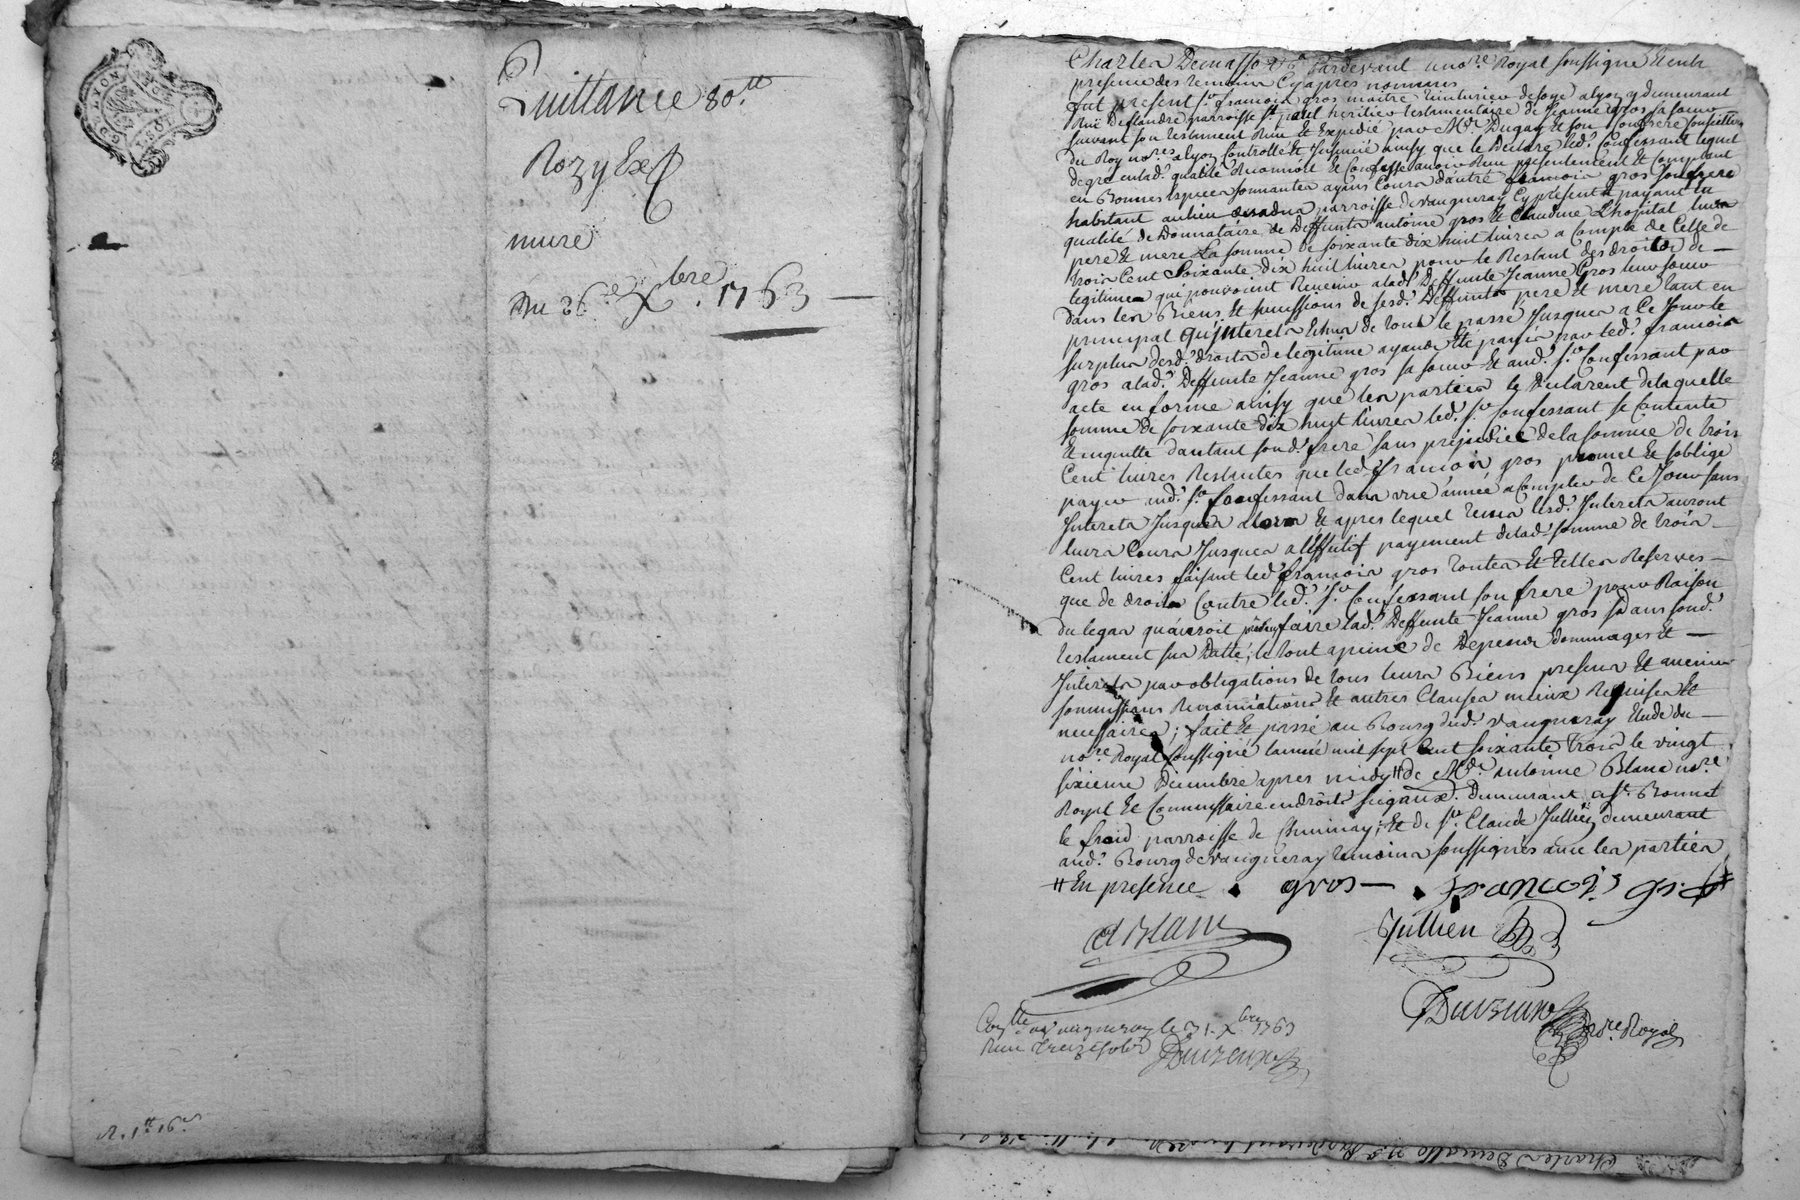 Quittance 80.tt
Rozy Ex
mure
Du 26.e Xbre. 1763
R. 1tt 16s
Charles Demasso &c Pardevant le nore. Royal soussigné et en la
presence des temoins cy apres nommés
fut present sr. francois gros maitre teinturier de soye a lyon y demeurant
Ruë Deflandre parroisse st. paul heritier testamentaire de Jeanne gros sa soeur
suivant son testament Reçu et Expedié par Me. Dugay et son Confrere Conseillers
du Roy nores. a lyon Controllé et Insinué ainsy que le Declare led. Confessant lequel
de gré en lad. qualité Reconnoit et Confesse avoir Reçu presentement et Comptant
en Bonnes Especes sonnantes ayans Cours d'autre francois gros son frere
habitant au lieu parroisse de vaugneray Cy present et payant en
qualité de Donnataire de Deffunts antoine gros et Claudine L'hopital leurs
pere et mere La somme de soixante dix huit livres a Compte de Celle de
trois Cent Soixante dix huit livres pour le Restant des droits de
legitimes qui pouvoient Revenir a lad. Deffunte Jeanne Gros leur soeur
dans les Biens et successions de sesd. Deffunts pere et mere tant en
principal qu'Interets Echus de tout le passé Jusques a Ce Jour le
surplus desd. droits de legitime ayant Eté payés par led. francois
gros a lad. Deffunte Jeanne gros sa soeur Et aud. sr. Confessant par
acte en forme ainsy que les parties le declarent de laquelle
somme de soixante dix huit livres led. sr. Confessant se Contente
Et en quitte d'autant sond. frere sans prejudice de la somme de trois
Cent livres Restantes que led. francois gros promet et s'oblige
payer aud. sr. Confessant dans une année a Compter de Ce Jour sans
Interets Jusques alors Et apres lequel tems lesd. Interets auront
leurs Cours Jusques a l'Effectif payement de lad. somme de trois
Cent livres faisant led. francois gros toutes Et telles Reserves
que de droit Contre led. sr. Confessant son frere pour Raison
du legat qu'auroit faire lad. Deffunte Jeanne gros dans sond.
testament sus Datté; le tout a peine de Depens dommages et
Interets par obligations de tous leurs Biens presens Et avenir
soumissions Renonciations Et autres Clauses mieux Requises Et
necessaires; fait Et passé au Bourg dud. vaugneray Etude du
nore. Royal soussigné l'année mil sept Cent soixante trois le vingt
sixieme Decembre apres midy # de Me. antoine Blanc nore.
Royal Et Commissaire en droits seigaux. demeurant a st. Bonnet
le froid parroisse de Chevinay; Et de sr. Claude Jullien demeurant
aud. Bourg de vaugneray temoins soussignés avec les parties
# En presence gros francois gros
A Blanc
Jullien
Duvzeux nore. Royal
Conttle. a vaugneray le 31. Xbre 1763
Reçu treize sols Duvzeux
Charles Demasso